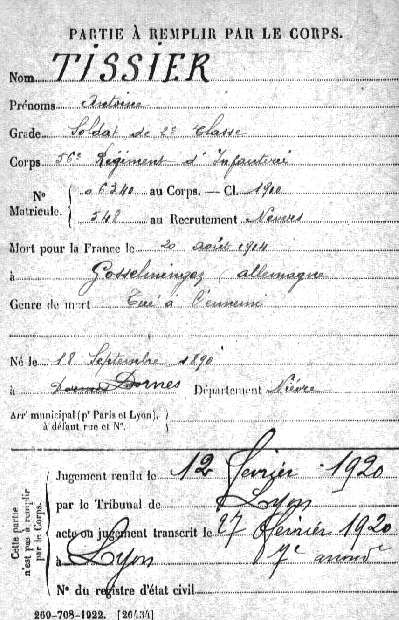 PARTIE À REMPLIR PAR LE CORPS.
Nom TISSIER
Prénoms Antoine
Grade Soldat de 2e Classe
Corps 56e Régiment d'Infanterie
N° Matricule. { 06340 au Corps. — Cl. 1910
548 au Recrutement Nevers
Mort pour la France le 20 août 1914
à Gosselmingen allemagne
Genre de mort Tué à l'ennemi
Né le 18 Septembre 1890
à Dornes Département Nièvre
Arrt municipal (pr Paris et Lyon),
à défaut rue et N°.
Cette partie n'est pas à remplir par le Corps.
Jugement rendu le 12 février 1920
par le Tribunal de Lyon
acte ou jugement transcrit le 27 février 1920
à Lyon 7e arrondt
N° du registre d'état civil
269-708-1922. [26434]